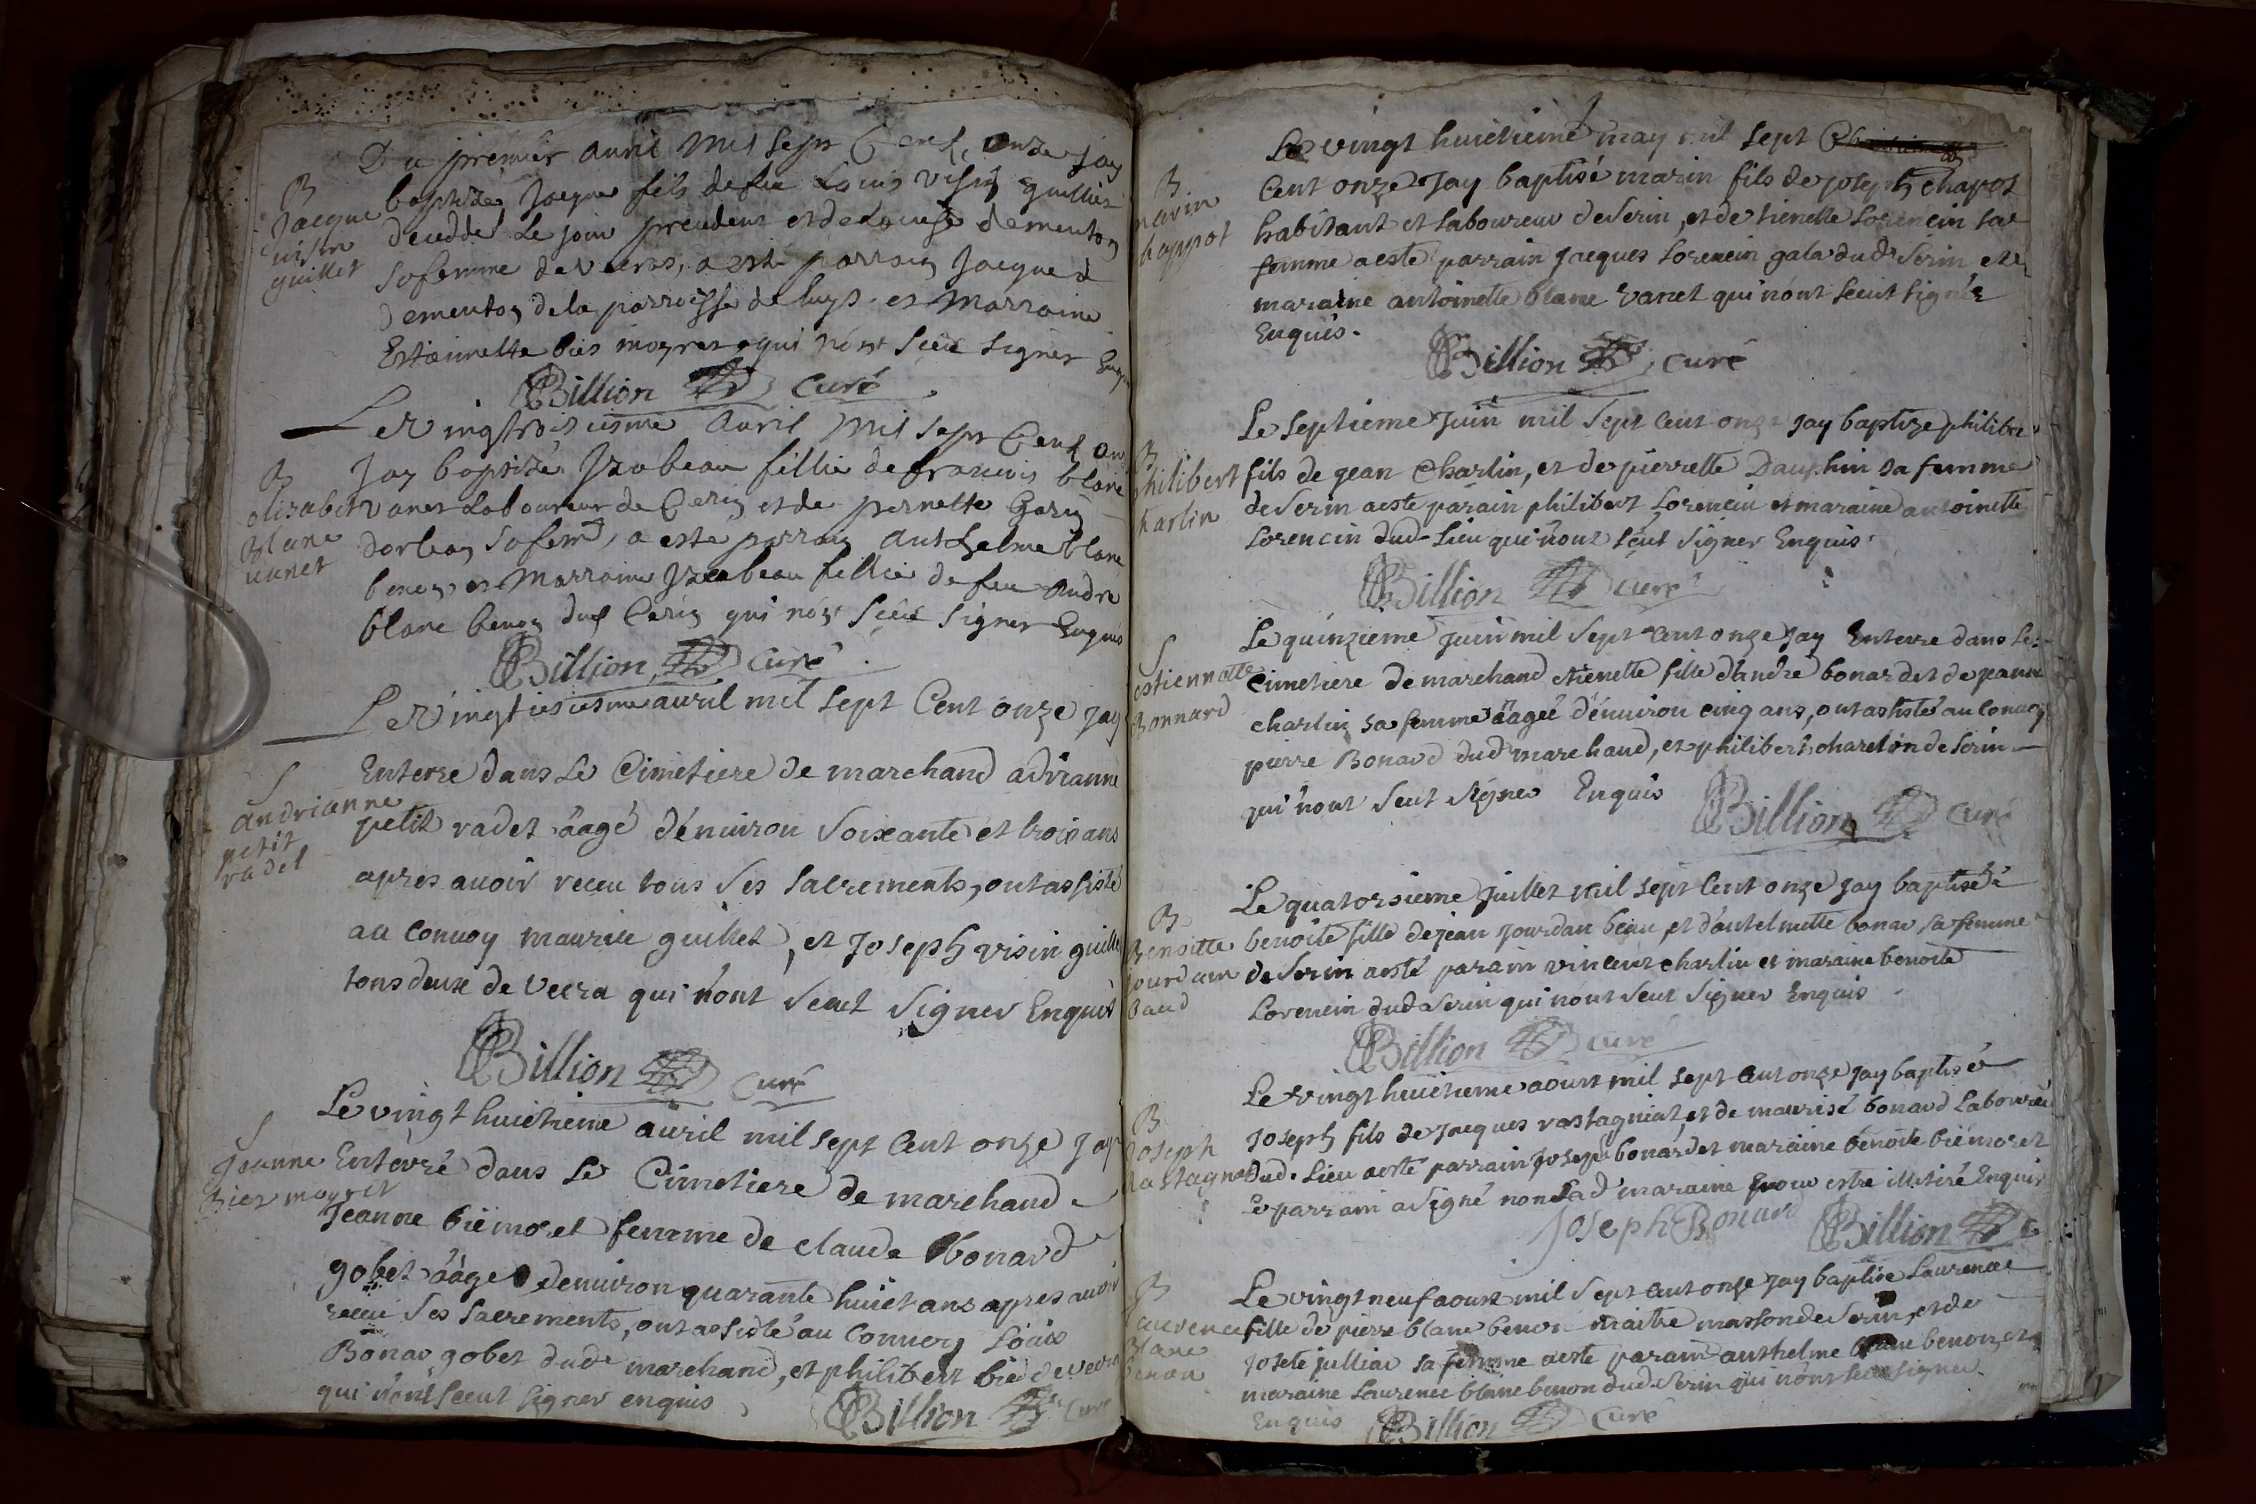 Du premier auril mil sept Cent, onze Jay
B
Jacque
uisin
guillet
baptisé Jacque fils de feu Louis visin guillet
decedde le jour precedent et de Louise dementon
sa femme de veera, a esté parrain Jacque d
dementon de la parroisse de luys et Marraine
Estiennette bies moyret qui nont sceu signer Enquis
Billion curé
Le vingtroisiesme auril mil sept Cent on
B
elisabet
Blanc
uanet
Jay baptisé Izabeau fillie de francois blanc
vanet laboureur de Cerin et de pernette
sa fem, a esté parrain anthelme blanc
benon et Marraine Izabeau fillie de feu Andre
blanc benon dud Cerin qui nont sceu signer Enquis
Billion curé
Le vingtsiesme auril mil sept Cent onze jay
S
andrianne
petit
radet
Enterre dans le Cimetiere de marchand adrianne
petit radet äagé d'enuiron soixante et trois ans
apres auoir receu tous ses sacrements, ont assisté
au conuoy maurise guillet, et Joseph visin guille
tous deux de Veera qui nont sceut signer Enquis
Billion curé
Le vingt huictieme auril mil sept cent onze jay
S
Jeanne
Bies moyret
Enterré dans le Cimetiere de marchand
Jeanne biemoret femme de claude Bonard
gobet äâge denuiron quarante huict ans apres auoir
receu ses sacrements, ont assisté au conuoy Loüis
Bonar gobet dud marchand, et philibert bie de veera
qui n'ont sceut signer enquis
Billion curé
Le vingt huictieme may mil sept
B
marin
chappot
Cent onze Jay baptisé marin fils de joseph chapot
habitant et laboureur de Serin, et de tienette Lorencin sa
femme a esté parrain jacques Lorencin gala dud Serin et
maraine antoinette blanc vanet qui nont sceut signer
Enquis.
Billion curé
Le septieme Juin mil sept cent onze jay baptize philibert
B
philibert
charlin
fils de jean Charlin, et de pierrette Dauphin sa femme
de Serin a esté parain philibert Lorencin et maraine antoinette
Lorencin dud Lieu qui nont sçeut signer Enquis
Billion curé
Le quinzieme Juin mil sept cent onze jay Enterre dans le
S
estiennette
Bonnard
cimetiere de marchand etienette fille d'andre bonardet de
charlin sa femme äagée d'enuiron cinq ans, ont assisté au conuoy
pierre Bonard dud marchand, et philibert charlin de Serin
qui n'ont sceut signer Enquis
Billion curé
Le quatorsieme Juillet mil sept cent onze jay baptisée
B
Benoitte
jourdam
baud
benoite fille de jean jourdan beau, et d'antelmette bonar sa femme
de Serin a esté parain vincent charlin et maraine benoite
Lorencin dud Serin qui nont sceut signer Enquis
Billion curé
Le vingt huictieme aoust mil sept cent onze jay baptisé
B
Joseph
Rastagna
Joseph fils de jacques rastagniat, et de maurise bonard Laboureur
dud. Lieu a esté parrain Joseph bonard et maraine benoite biémoret
le parrain a signé non lad maraine pour estre illitiré Enquis
Joseph Bonard Billion
Le vingt neuf aoust mil sept cent onze jay baptise Laurence
B
Laurence
Blanc
benon
fille de pierre blanc benon maitre masson de Serin, et de
Josete jullian sa femme a esté parain anthelme blanc benon et
maraine Laurence blanc benon dud Serin qui n'ont sceu signer
Enquis Billion curé